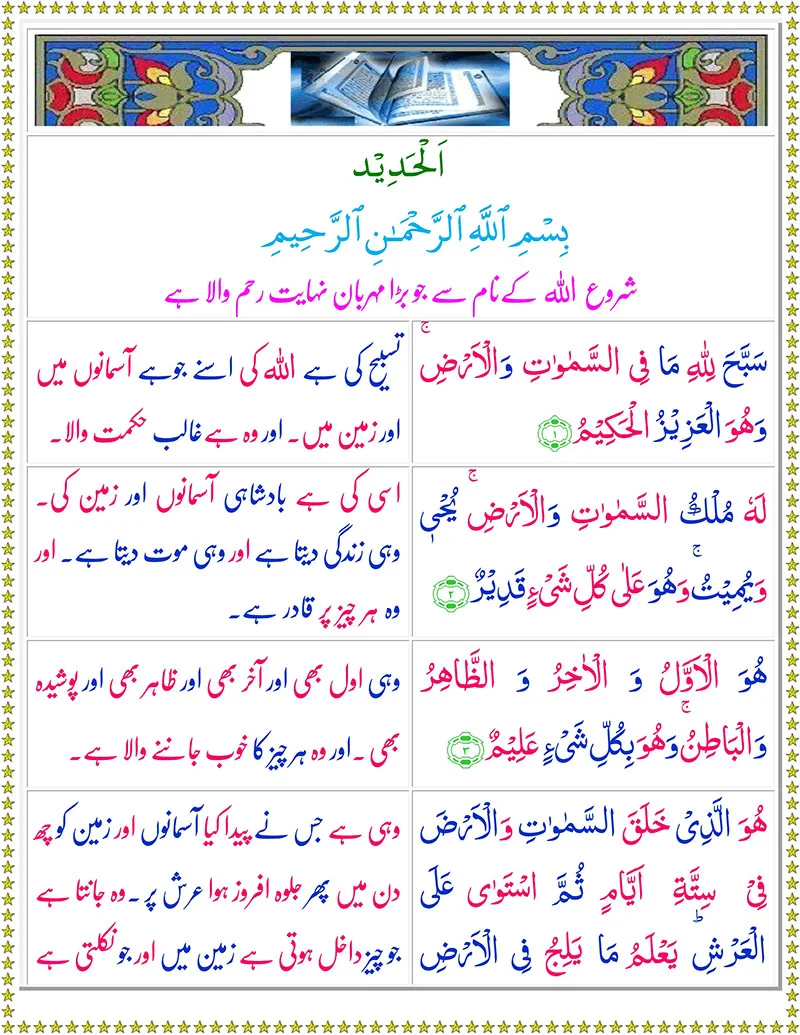 اَلْحَدِيْد
بِسْمِ ٱللَّهِ ٱلرَّحْمَـٰنِ ٱلرَّحِيمِ
شروع اللہ کے نام سے جو بڑا مہربان نہایت رحم والا ہے
سَبَّحَ لِلّٰهِ مَا فِى السَّمٰوٰتِ وَالْاَرْضِ ۚ
وَهُوَ الْعَزِيْزُ الْحَكِيْمُ ﴿۱﴾
تسبیح کی ہے اللہ کی اسنے جوہے آسمانوں میں
اور زمین میں۔ اور وہ ہے غالب حکمت والا۔
لَهٗ مُلْكُ السَّمٰوٰتِ وَالْاَرْضِ ۚ يُحْىٖ
وَيُمِيْتُ ۚ وَهُوَ عَلٰى كُلِّ شَىْءٍ قَدِيْرٌ ﴿۲﴾
اسی کی ہے بادشاہی آسمانوں اور زمین کی۔
وہی زندگی دیتا ہے اور وہی موت دیتا ہے۔ اور
وہ ہر چیز پر قادر ہے۔
هُوَ الْاَوَّلُ وَ الْاٰخِرُ وَ الظَّاهِرُ
وَالْبَاطِنُ ۚ وَهُوَ بِكُلِّ شَىْءٍ عَلِيْمٌ ﴿۳﴾
وہی اول بھی اور آخر بھی اور ظاہر بھی اور پوشیدہ
بھی ۔ اور وہ ہر چیز کا خوب جاننے والا ہے۔
هُوَ الَّذِىْ خَلَقَ السَّمٰوٰتِ وَالْاَرْضَ
فِىْ سِتَّةِ اَيَّامٍ ثُمَّ اسْتَوٰى عَلَى
الْعَرْشِ ؕ يَعْلَمُ مَا يَلِجُ فِى الْاَرْضِ
وہی ہے جس نے پیدا کیا آسمانوں اور زمین کو چھ
دن میں پھر جلوہ افروز ہوا عرش پر ۔ وہ جانتا ہے
جو چیز داخل ہوتی ہے زمین میں اور جو نکلتی ہے